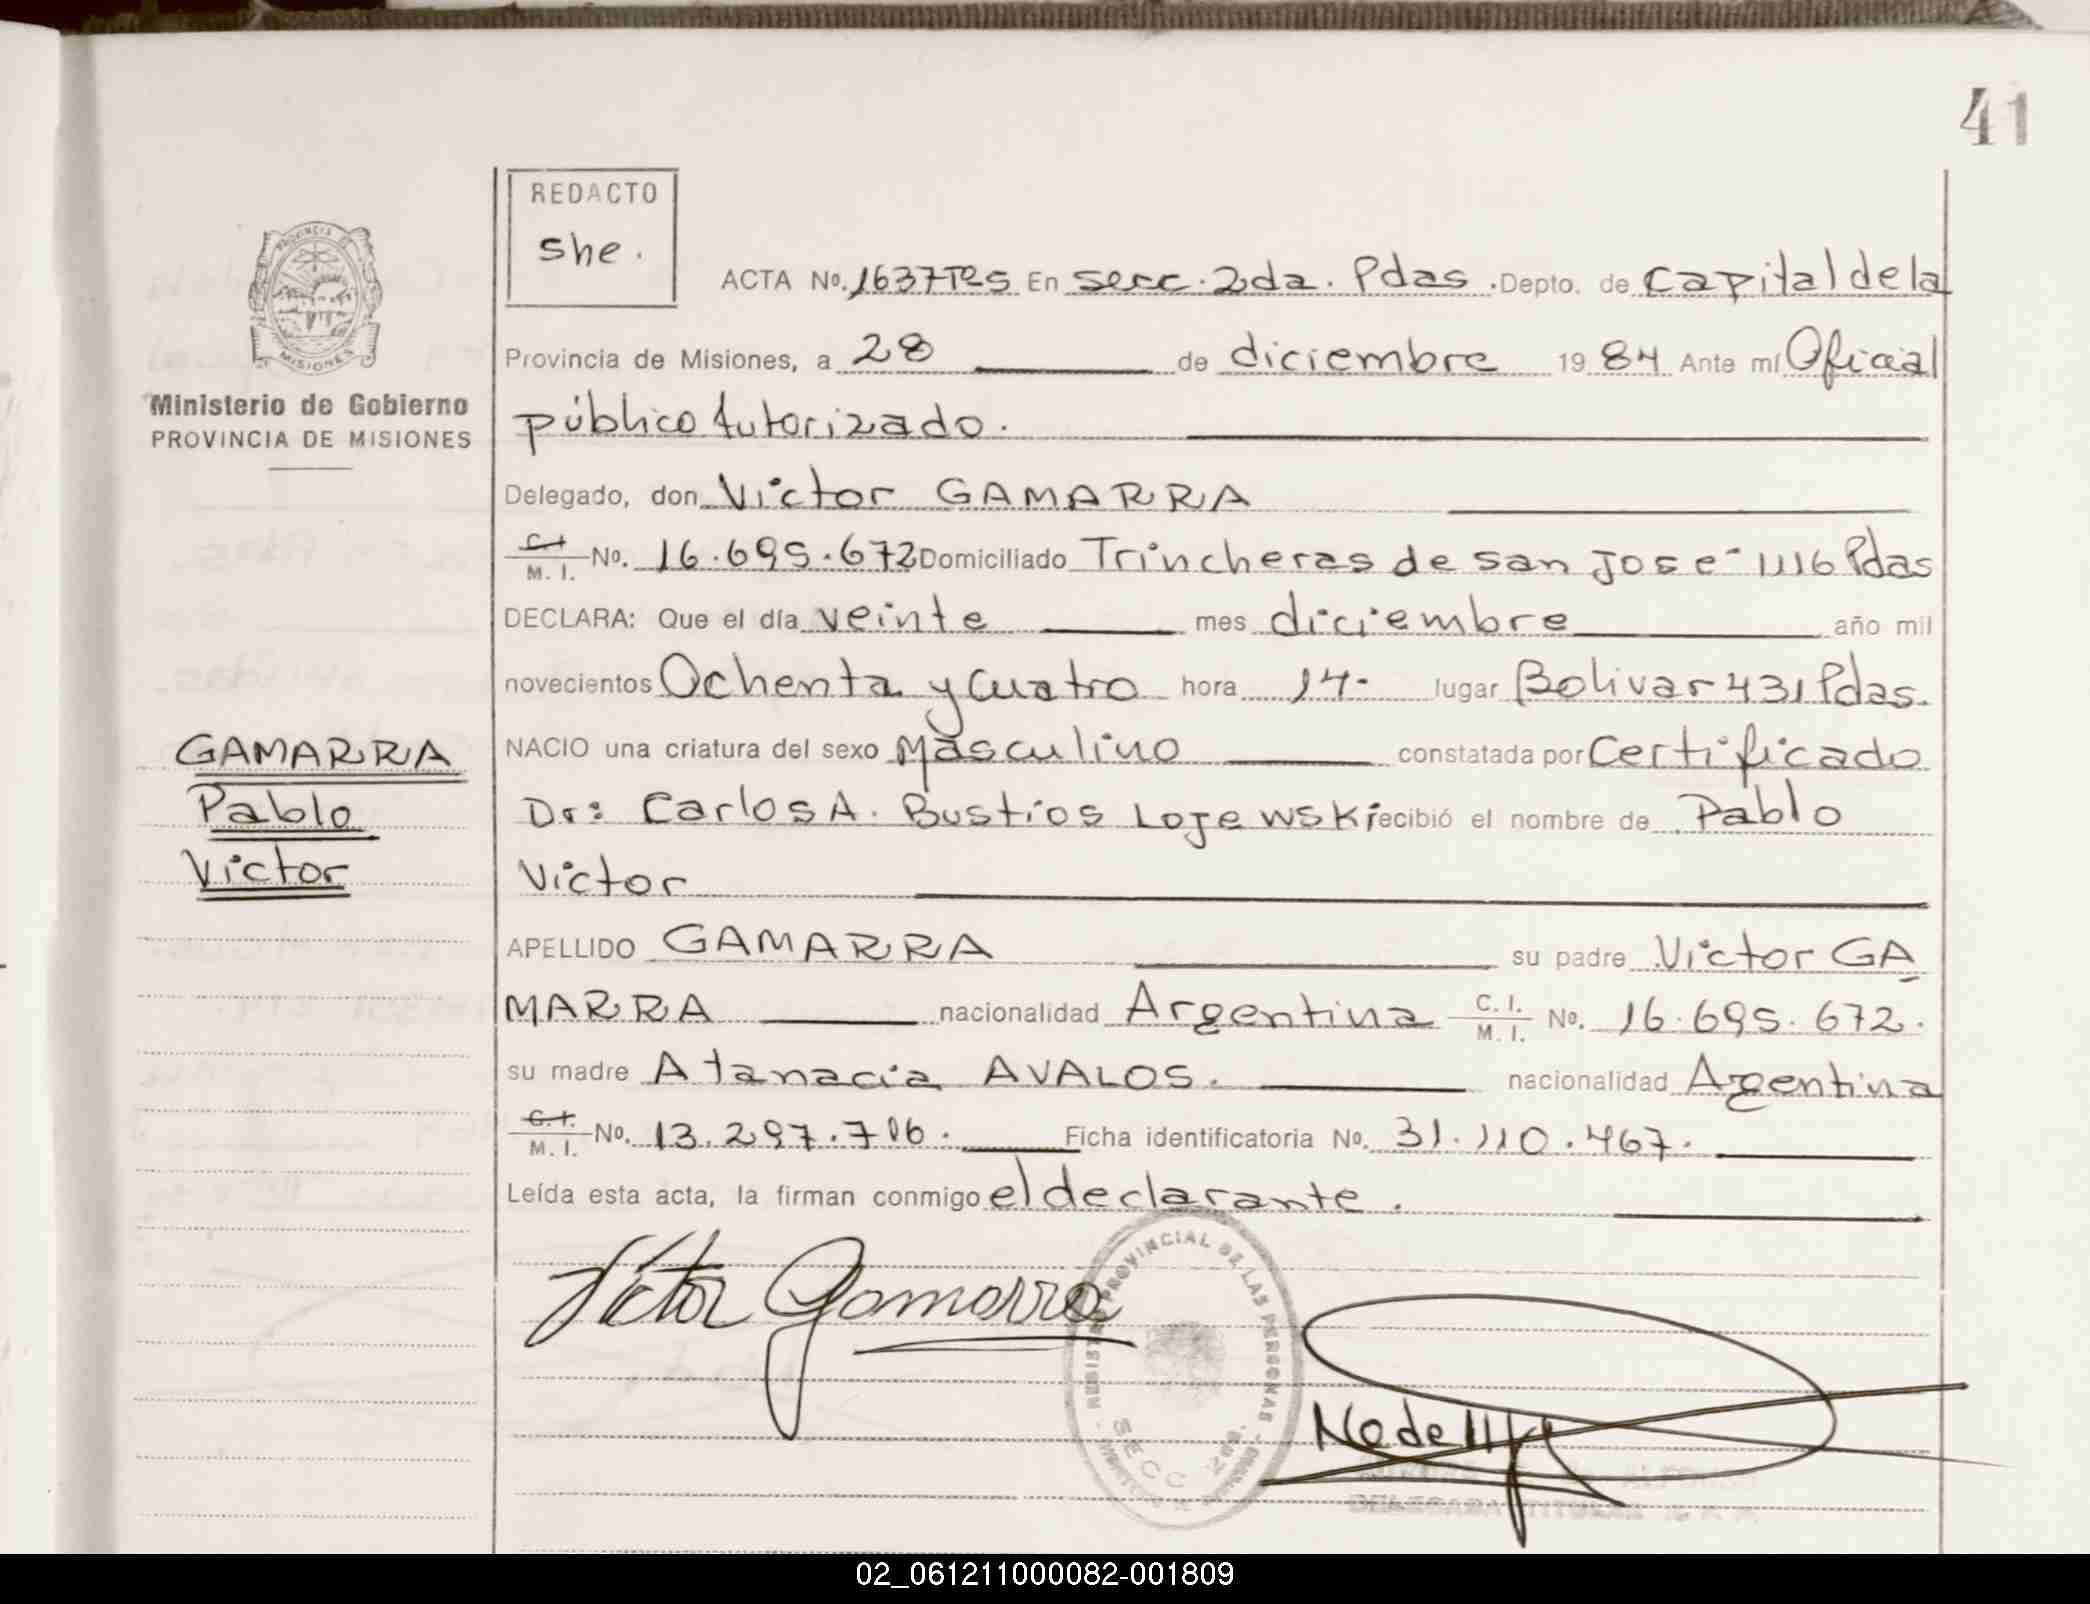 41
REDACTO
she.
ACTA No. 1637Tºs En secc. 2da. Pdas. Depto. de Capital de la
PROVINCIA DE
MISIONES
Ministerio de Gobierno
PROVINCIA DE MISIONES
Provincia de Misiones, a 28 de diciembre 1984 Ante mí Oficial
público Autorizado.
Delegado, don Victor GAMARRA
C.I. M. I. No. 16.695.672 Domiciliado Trincheras de san Jose- 1116 Pdas
DECLARA: Que el día veinte mes diciembre año mil
novecientos Ochenta y cuatro hora 14. lugar Bolivar 431 Pdas.
NACIO una criatura del sexo Masculino constatada por Certificado
Dr: Carlos A. Bustios Lojewski recibió el nombre de Pablo
Victor
GAMARRA
Pablo
Victor
APELLIDO GAMARRA su padre Victor GA
MARRA nacionalidad Argentina C. I. M. I. No. 16.695.672.
su madre Atanacia AVALOS. nacionalidad Argentina
C.I. M. I. No. 13.297.706. Ficha identificatoria No. 31.110.467.
Leída esta acta, la firman conmigo el declarante.
Victor Gamarra
REGISTRO PROVINCIAL DE LAS PERSONAS
SECC 2da.
DELEGADA TITULAR
02_061211000082-001809